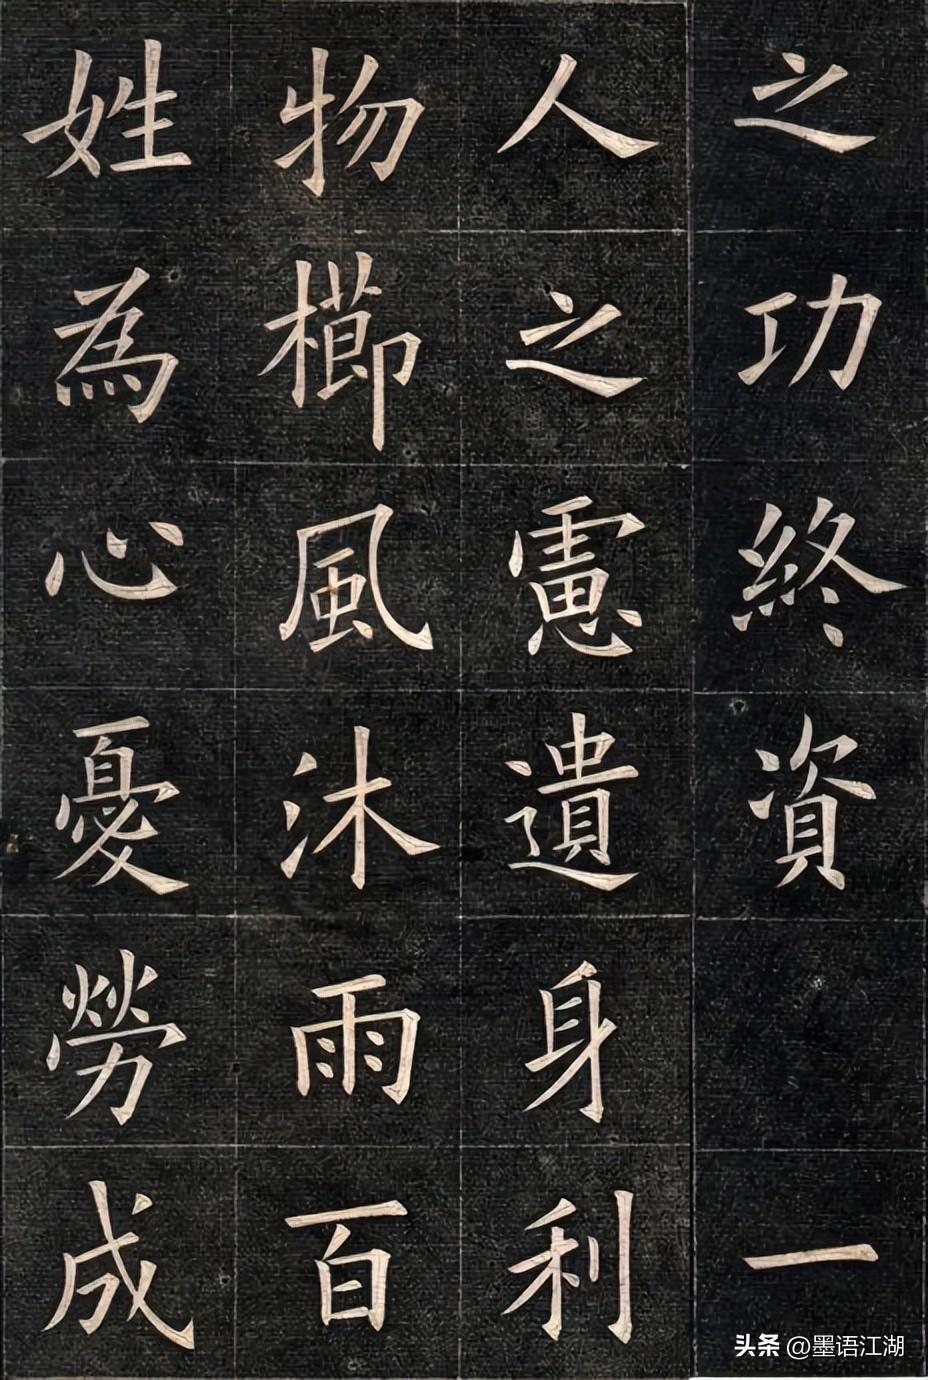 之功終資一
人之慮遺身利
物櫛風沐雨百
姓為心憂勞成
头条 @墨语江湖